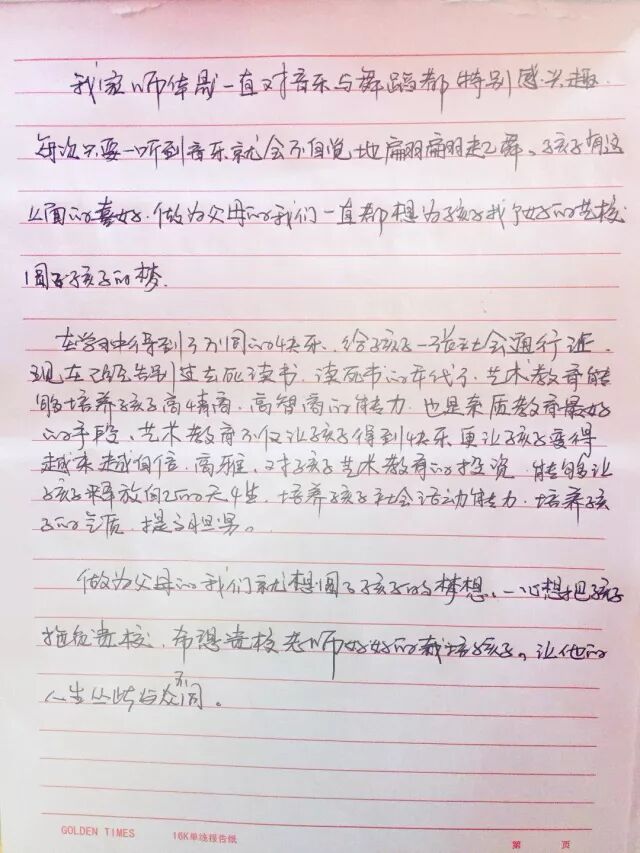 我家师体晟一直对音乐与舞蹈都特别感兴趣.
每次只要一听到音乐就会不自觉地扁羽扁羽起舞、孩子有这
方面的喜好.做为父母的我们一直都想为孩子找个好的艺校
圆了孩子的梦.
在学习中得到了不同的快乐、给孩子一张社会通行证.
现在已经告别过去死读书.读死书的年代了.艺术教育能
够培养孩子高情商.高智商的能力.也是素质教育最好
的手段、艺术教育不仅让孩子得到快乐更让孩子变得
越来越自信.高雅.对孩子艺术教育的投资.能够让
孩子释放自己的天性.培养孩子社会活动能力.培养孩
子的气质.提高胆量。
做为父母的我们就想圆了孩子的梦想、一心想把孩子
拖负贵校.希想贵校老师好好的栽培孩子。让他的
人生从此与众不同。
GOLDEN TIMES 16K单线报告纸 第 页